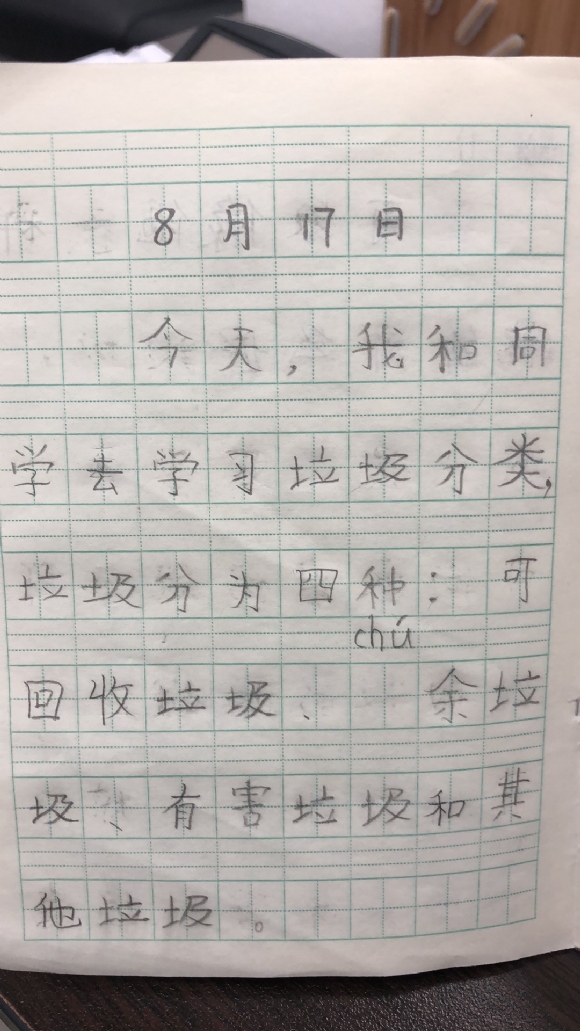 8月17日
今天，我和周
学去学习垃圾分类，
垃圾分为四种：可
chú
回收垃圾、 余垃
圾、有害垃圾和其
他垃圾。